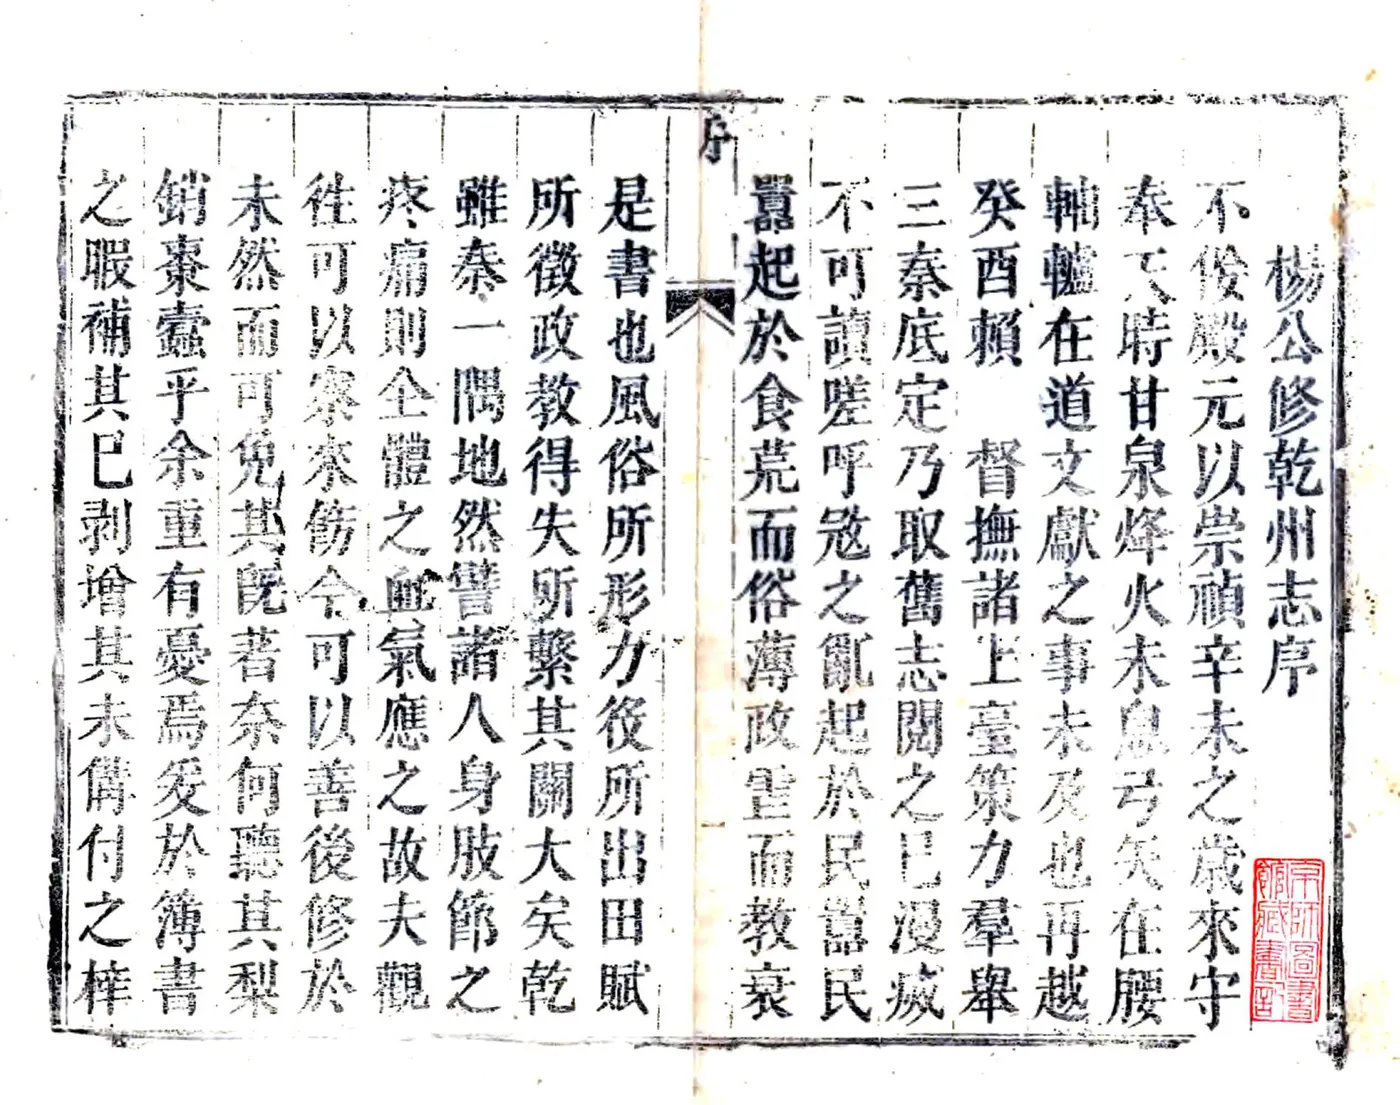 楊公修乾州志序
不佞殿元以崇禎辛未之歲來守
奉天時甘泉烽火未息弓矢在腰
軸轤在道文獻之事未及也再越
癸酉賴　督撫諸上臺策力羣舉
三秦底定乃取舊志閱之巳漫㓕
不可讀嗟呼冦之亂起於民嚚民
嚚起於食荒而俗薄政䨓而教衰
序
是書也風俗所形力役所出田賦
所徵政教得失所繫其關大矣乾
雖秦一隅地然譬諸人身肢節之
疼痛則全體之血氣應之故夫觀
徃可以察來飭今可以善後修於
未然而可免其旣者奈何聽其梨
銷棗蠹乎余重有憂焉爰於簿書
之暇補其巳剥增其未備付之梓
京師圖書
館藏書記